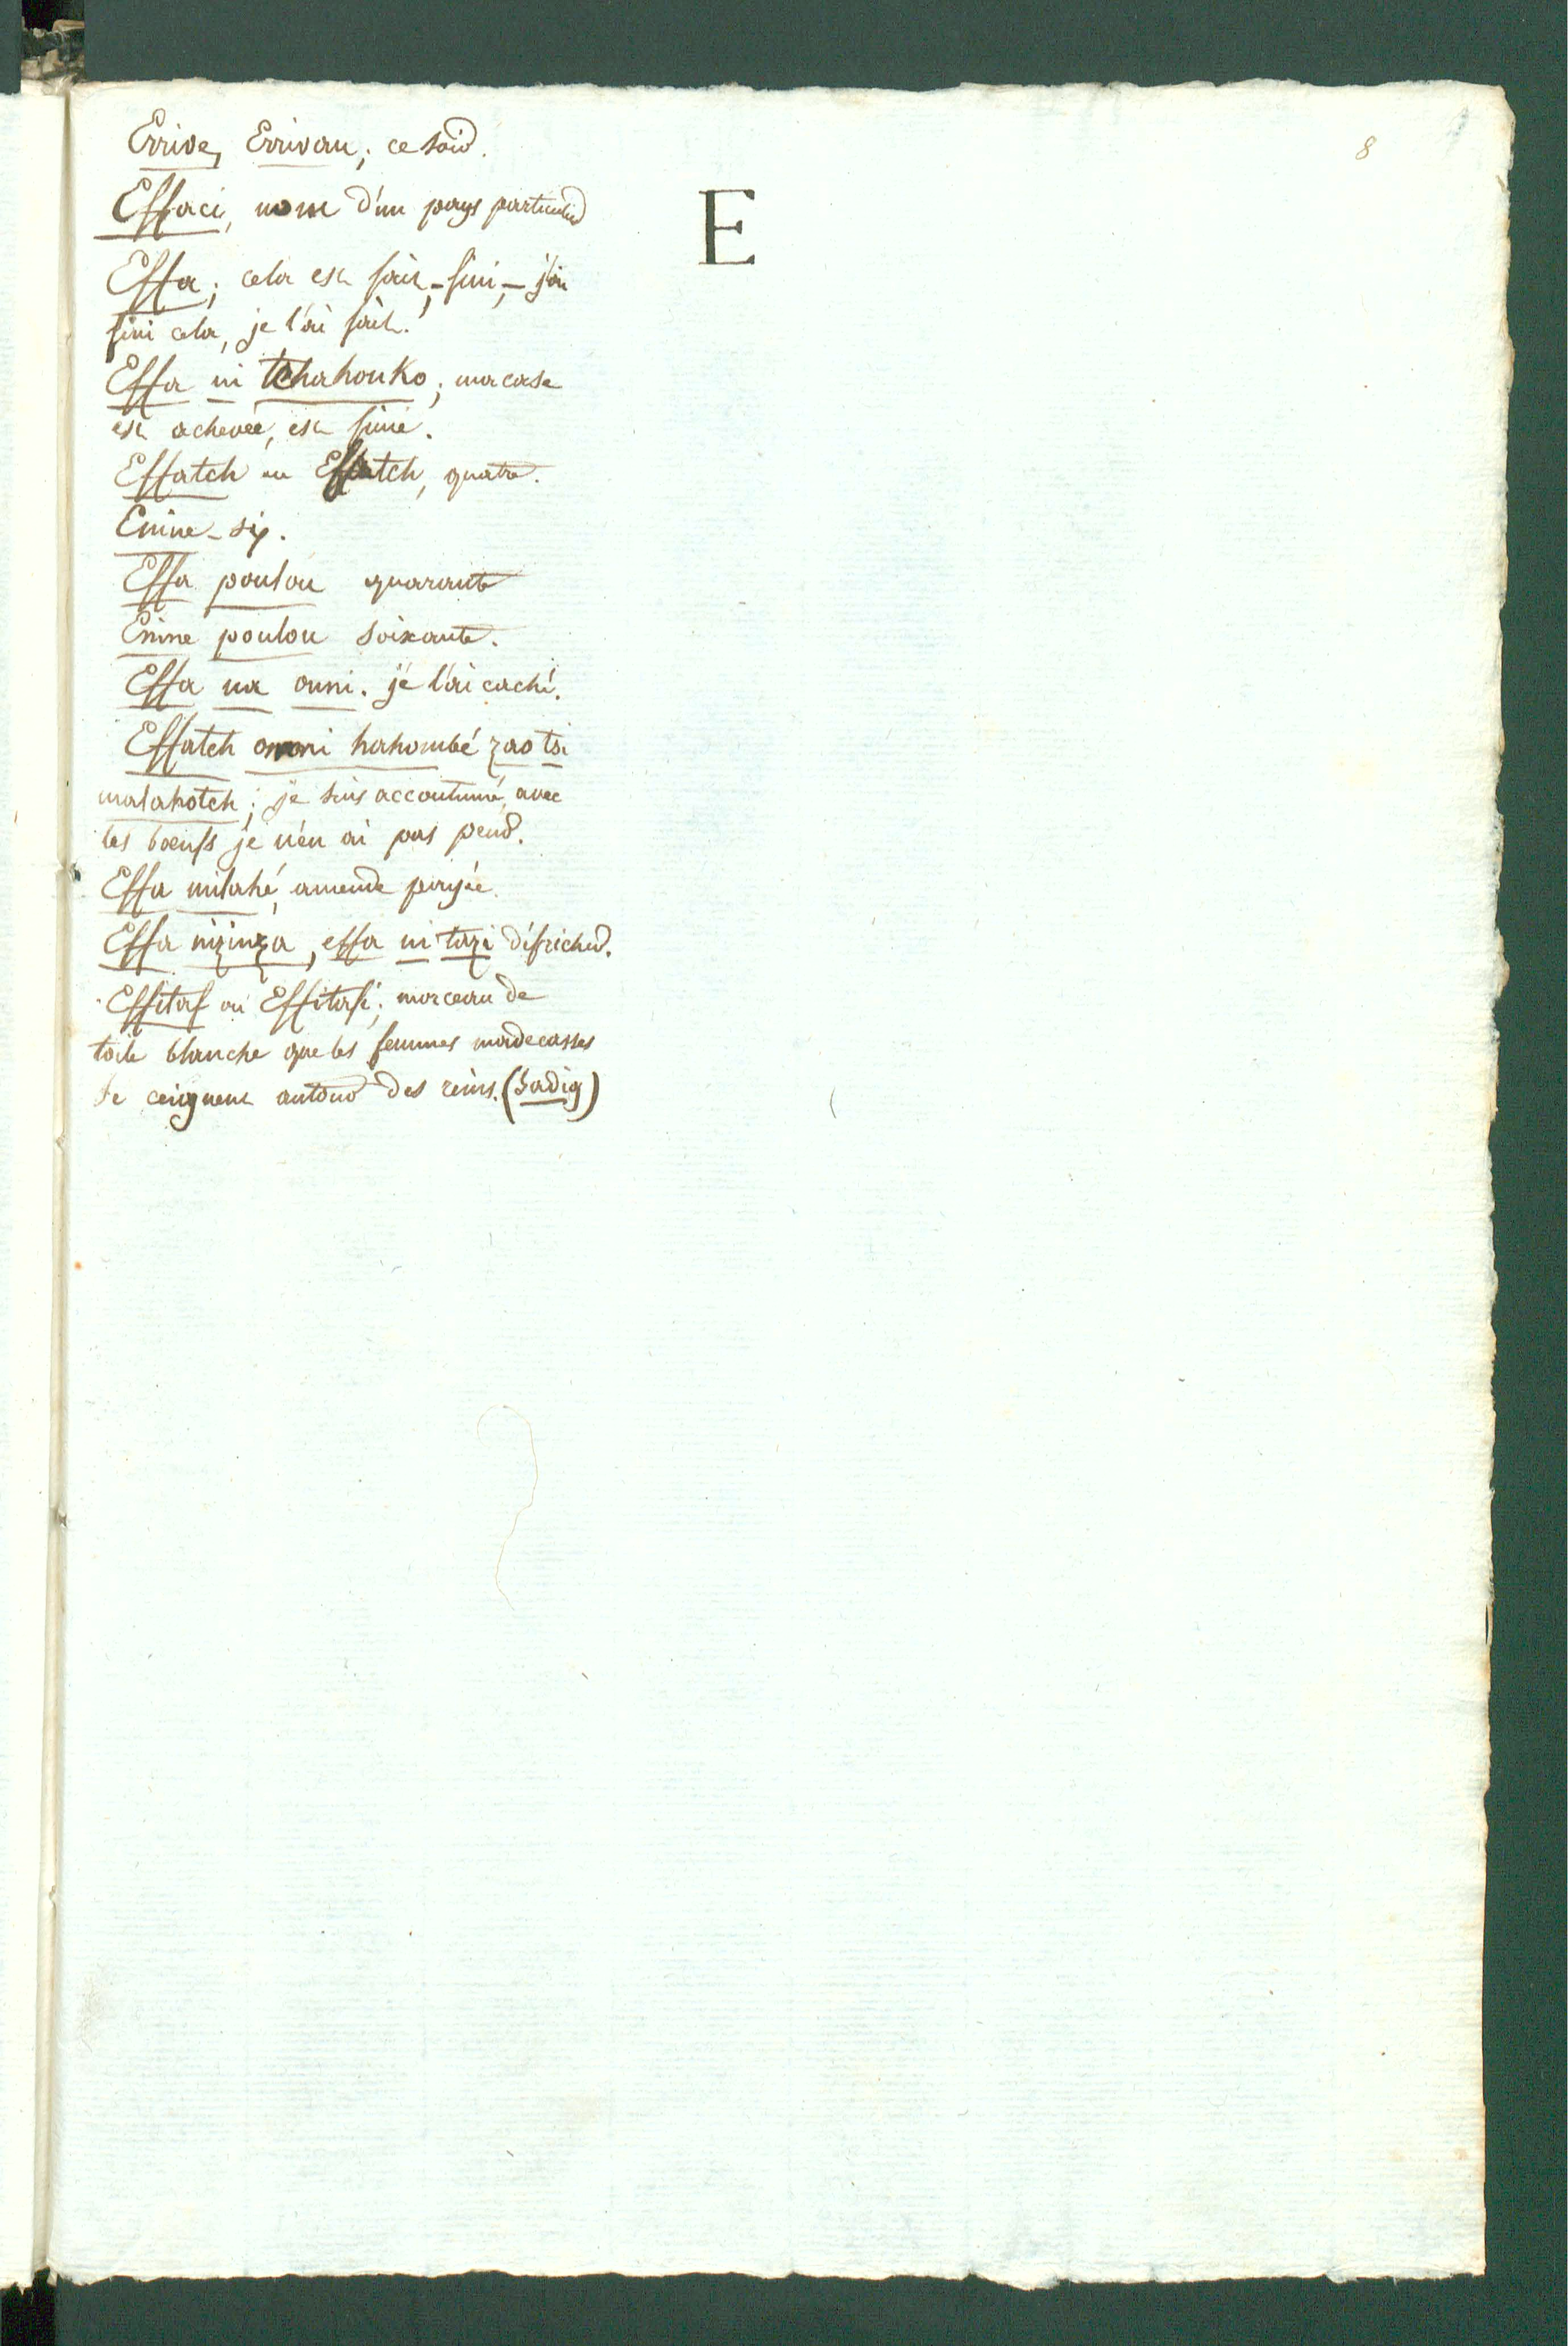 8
E
Errive, Errivau; ce soir.
Effaci, nom d'un pays particulier
Effa; cela est fait, - fini, - j'ai
fini cela, je l'ai fait.
Effa ni tchahouko; ma case
est achevée, est finie.
Effatch ou Effutch, quatre.
Enine - six.
Effa poulou quarante
Enine poulou soixante.
Effa na ouni. je l'ai caché.
Effatch omoni hahombé zao tsi
malahotch; je suis accoutumé avec
les boeufs je n'en ai pas peur.
Effa milahé, amende payée.
Effa nizinza, effa ni tazi défricher.
Effitaf ou Effitafi; morceau de
toile blanche que les femmes madecasses
se ceignent autour des reins. (Sadig)